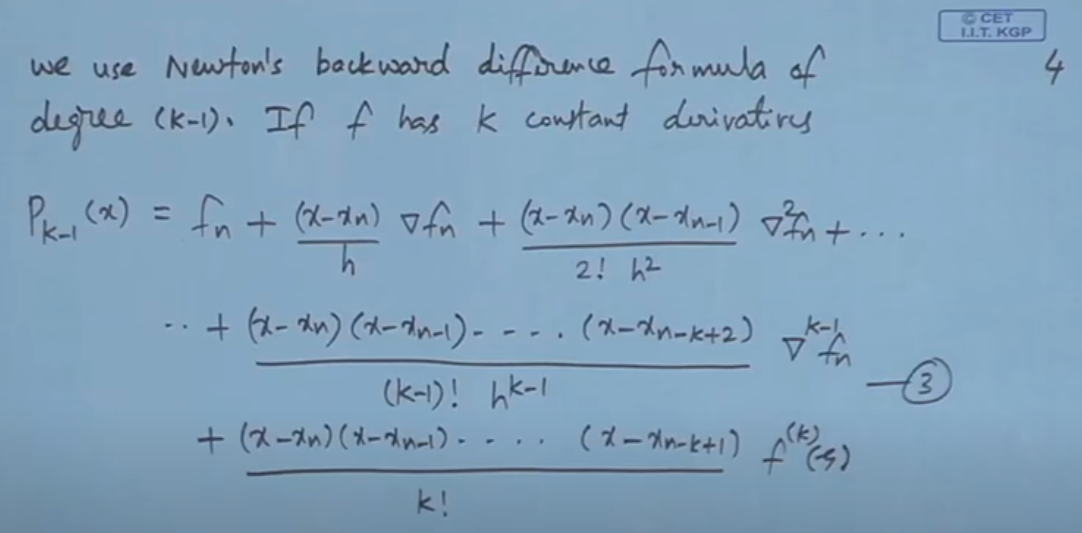 © CET
I.I.T. KGP
4
we use Newton's backward difference formula of
degree (k-1). If f has k constant derivatives
P_{k-1}(x) = f_n + \frac{(x-x_n)}{h} ∇f_n + \frac{(x-x_n)(x-x_{n-1})}{2! h^2} ∇^2 f_n + ...
.. + \frac{(x-x_n)(x-x_{n-1})- - - . (x-x_{n-k+2})}{(k-1)! h^{k-1}} ∇^{k-1} f_n —③
+ \frac{(x-x_n)(x-x_{n-1}) . . . . (x-x_{n-k+1})}{k!} f^{(k)}(ξ)